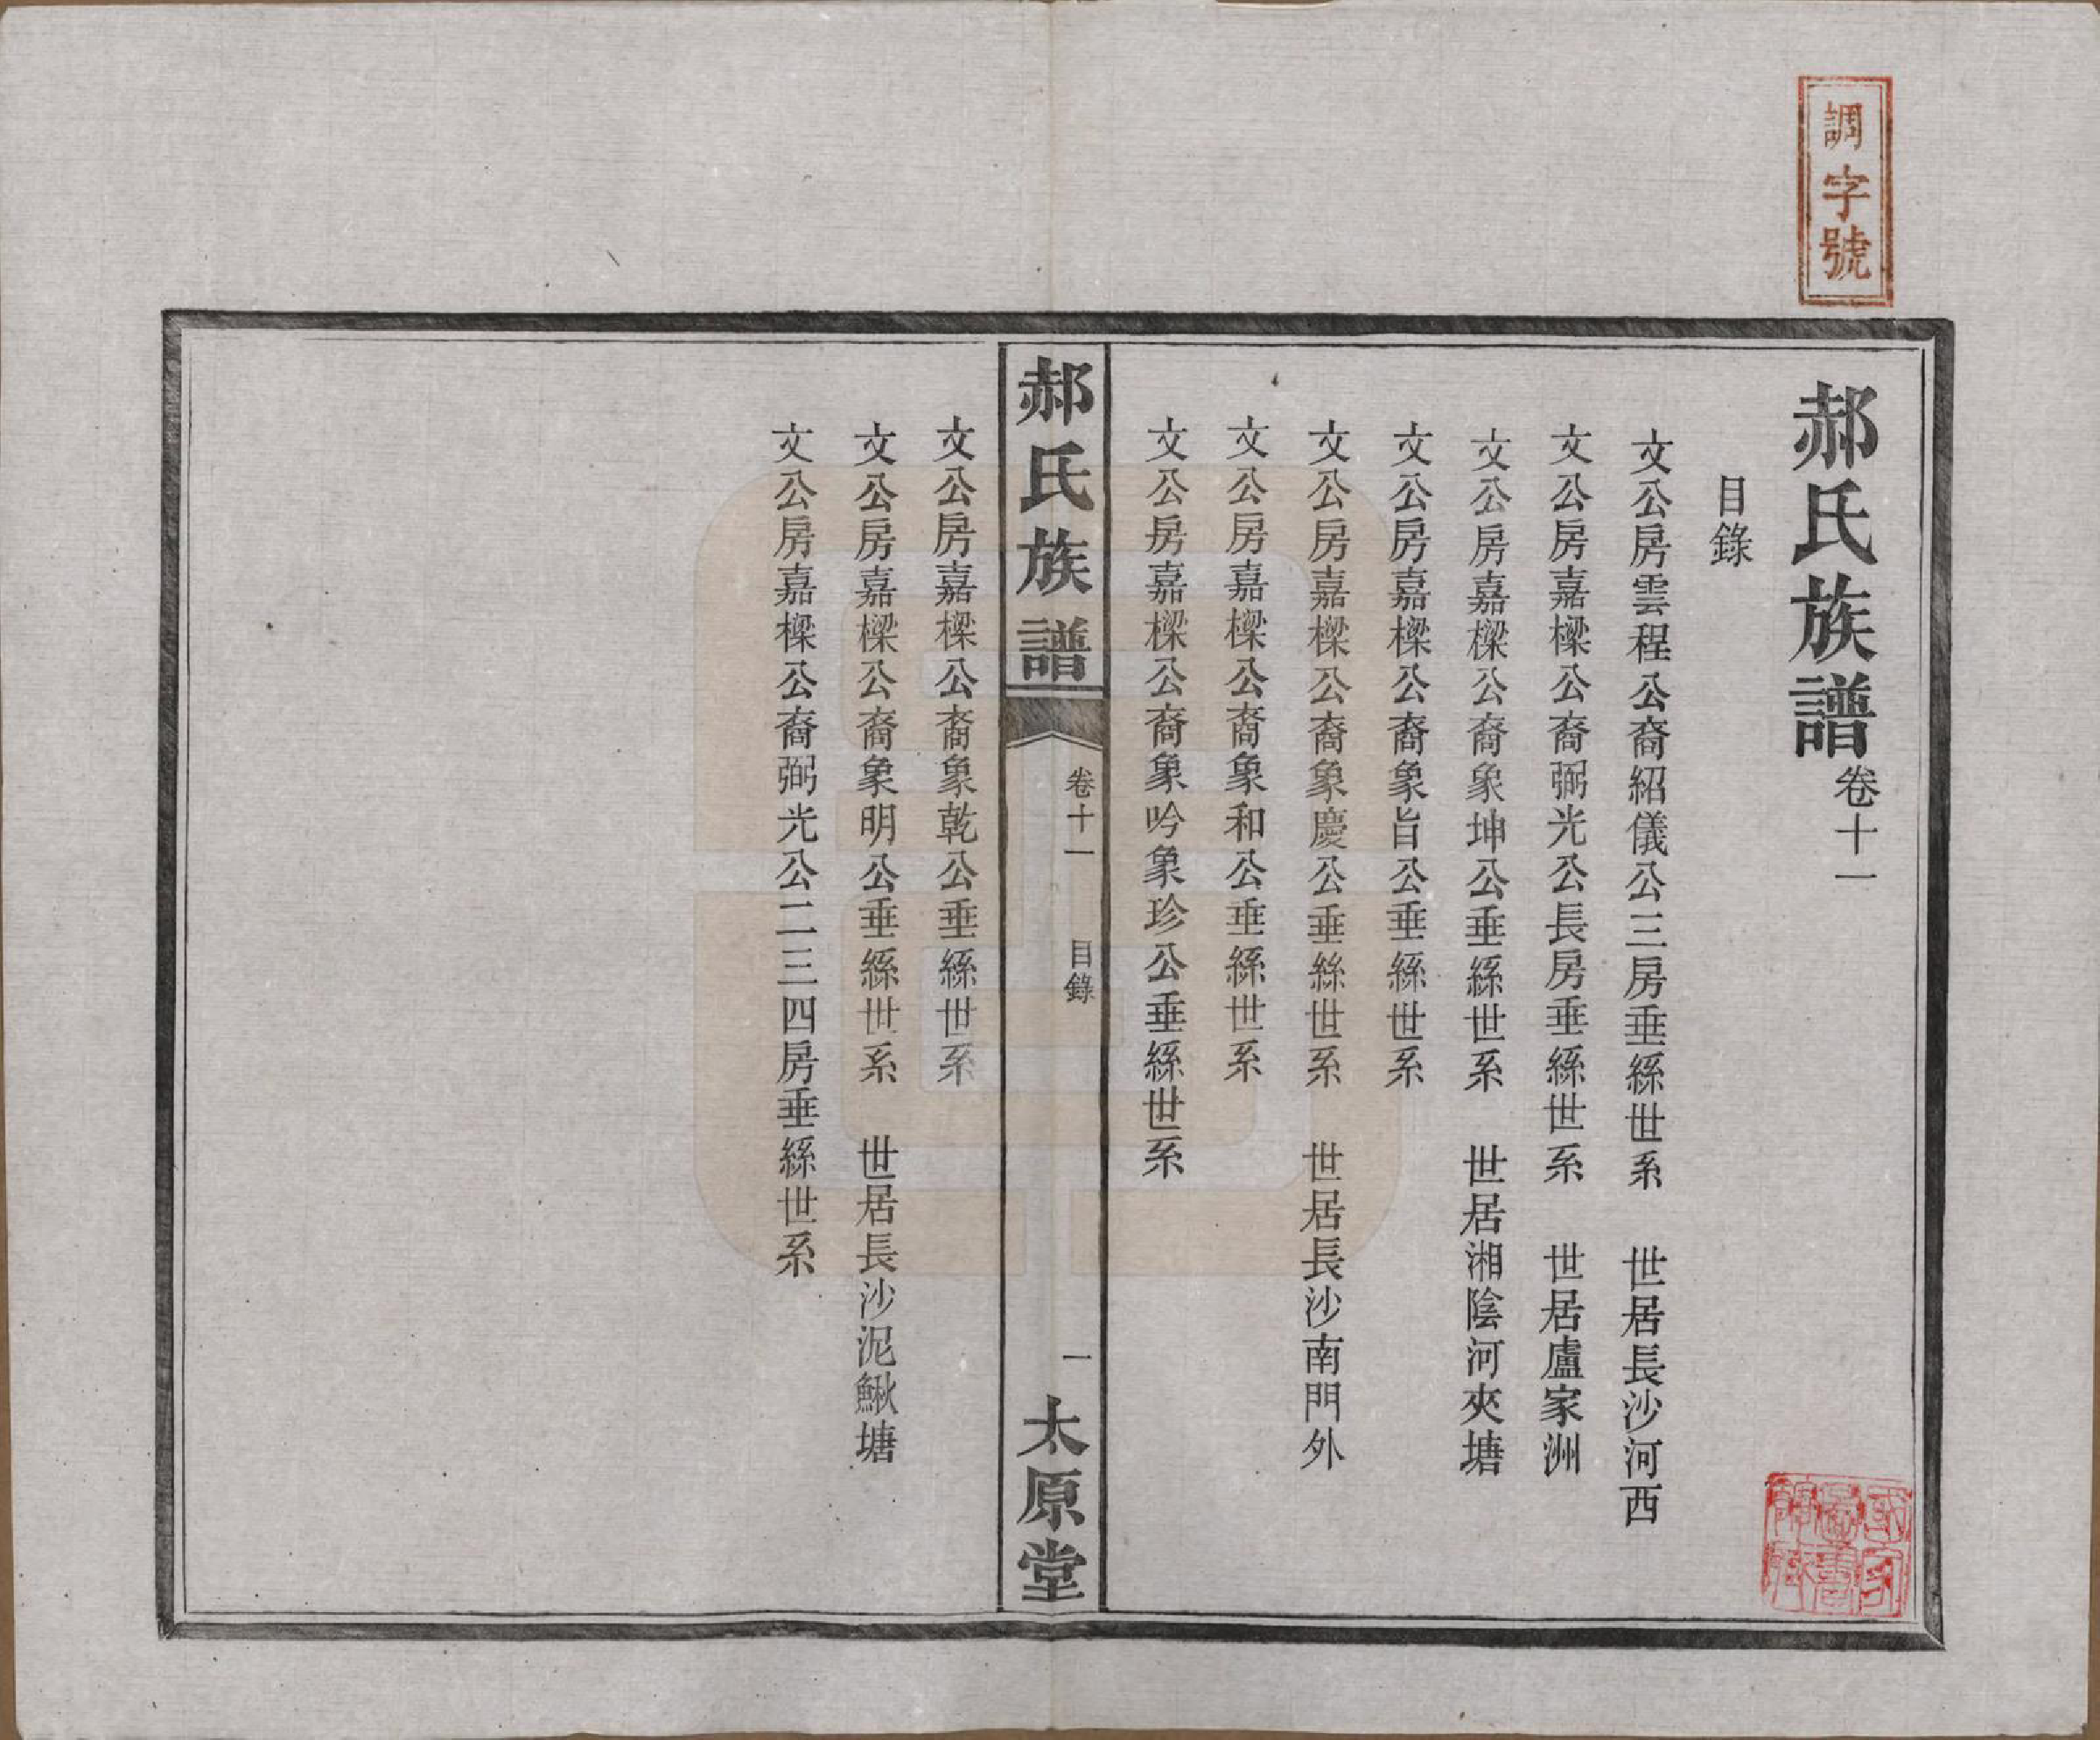 調字號
郝氏族譜卷十一
目錄
文公房雲程公裔紹儀公三房垂絲世系 世居長沙河西
文公房嘉樑公裔弼光公長房垂絲世系 世居盧家洲
文公房嘉樑公裔象坤公垂絲世系 世居湘陰河夾塘
文公房嘉樑公裔象旨公垂絲世系
文公房嘉樑公裔象慶公垂絲世系 世居長沙南門外
文公房嘉樑公裔象和公垂絲世系
文公房嘉樑公裔象吟象珍公垂絲世系
郝氏族譜 卷十一 目錄 一 太原堂
文公房嘉樑公裔象乾公垂絲世系
文公房嘉樑公裔象明公垂絲世系 世居長沙泥鰍塘
文公房嘉樑公裔弼光公二三四房垂絲世系